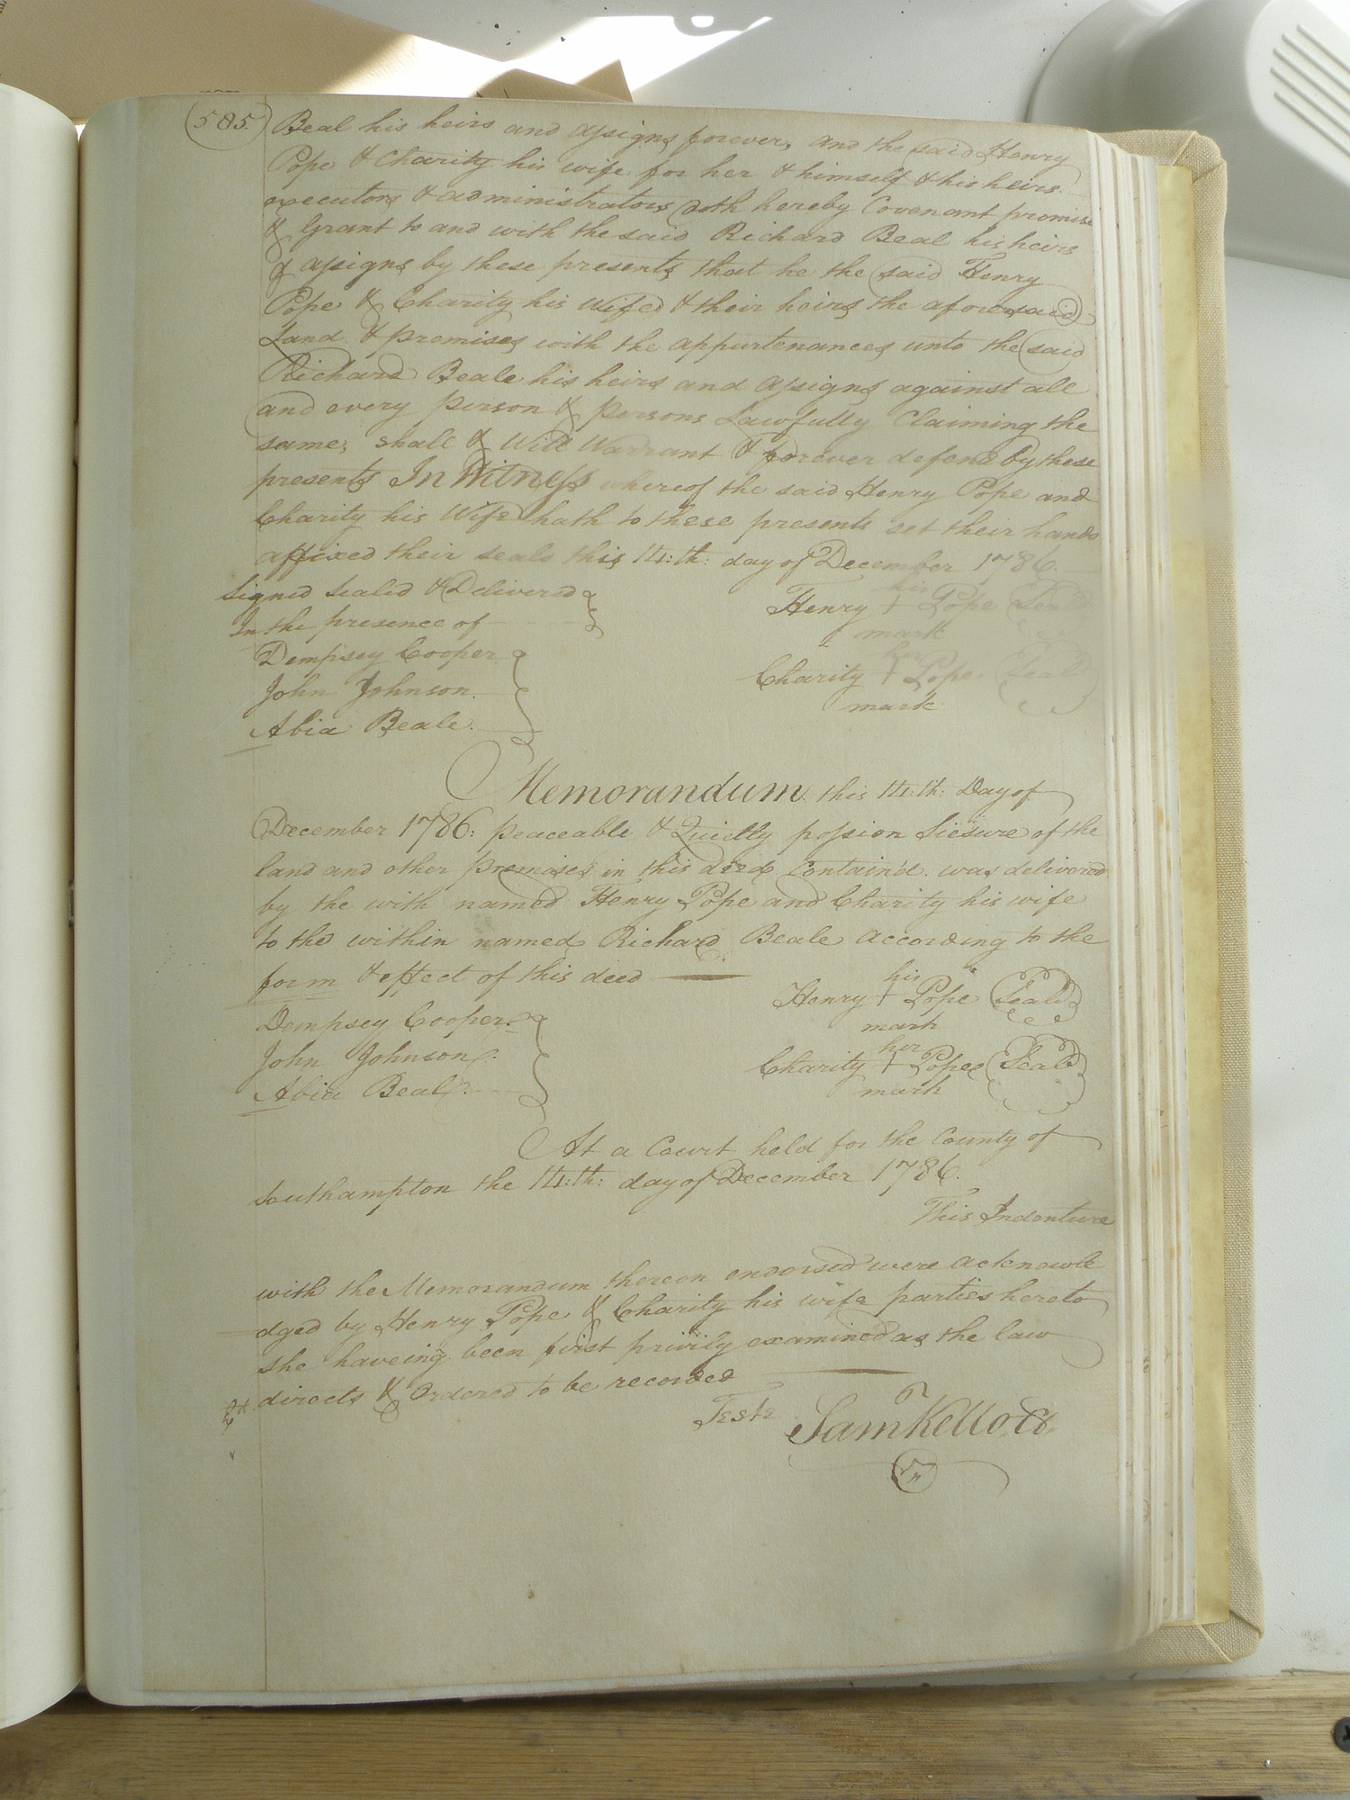 585.
Beal his heirs and assigns forever, and the said Henry
Pope & Charity his wife for her & himself & his heirs
executors & administrators doth hereby Covenant promise
& Grant to and with the said Richard Beal his heirs
& assigns by these presents that he the said Henry
Pope & Charity his Wife & their heirs the aforesaid
Land & premises with the appurtenances unto the said
Richard Beale his heirs and assigns against all
and every person & persons Lawfully Claiming the
same, shall & Will Warrant & forever defend by these
presents In Witness whereof the said Henry Pope and
Charity his Wife hath to these presents set their hands
affixed their seals this 14:th: day of December 1786.
Signed Sealed & Delivered
In the presence of
Dempsey Cooper
John Johnson.
Abia Beale.
his
Henry + Pope Seal
mark
her
Charity + Pope Seal
mark
Memorandum this 14:th: Day of
December 1786: peaceable & Quietly possion Siesure of the
land and other premises in this deed Contain'd. was delivered
by the with named Henry Pope and Charity his wife
to the within named Richard Beale according to the
form & effect of this deed
Dempsey Cooper.
John Johnson.
Abia Beal.
his
Henry + Pope Seal
mark
her
Charity + Pope Seal
mark
At a Court held for the County of
Southampton the 14:th: day of December 1786.
This Indenture
with the Memorandum thereon endorsed were acknowle
dged by Henry Pope & Charity his wife parties hereto
she haveing been first privily examined as the law
directs & Ordered to be recorded
Teste
Sam Kello